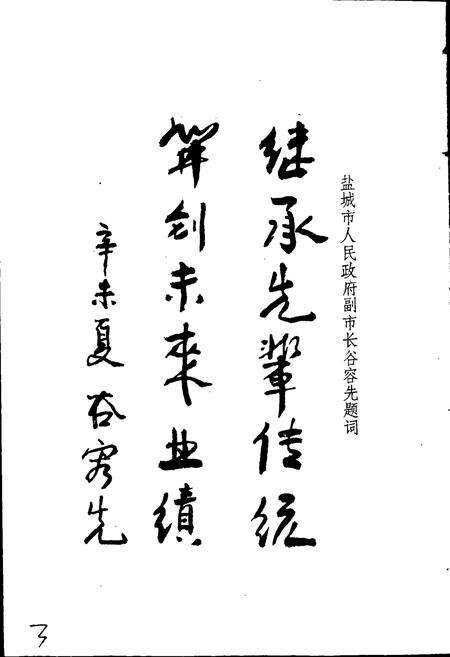 盐城市人民政府副市长谷容先题词
继承先輩传统
算创未来业绩
辛未夏 谷容先
3